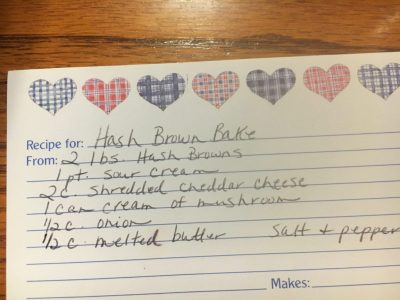 Recipe for: Hash Brown Bake
From: 2 lbs Hash Browns
1 pt. sour cream
2 c. shredded cheddar cheese
1 can cream of mushroom
1/2 c. onion
1/2 c. melted butter salt + pepper
Makes: